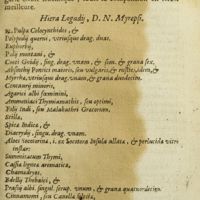 meilleure.
Hiera Logadij, D. N. Myrepsi.
℞. Pulpa Colocynthidos, &
Polypodij querni, vtriusque drag. duas.
Euphorbij,
Polij montani, &
Cocci Gnidij, sing. drag. vnam, & sem. & grana sex.
Absinthij Pontici maioris, seu vulgaris, & rustic. idem, &
Myrrha, vtriusque drag. vnam, & grana duodecim.
Centaurij minoris,
Agarici albi fœminini,
Ammoniaci Thymiamatis, seu optimi,
Folij Indi, seu Malabathri Gracorum,
Scilla,
Spica Indica, &
Diacrydij, sing. drag. vnam.
Aloes Soccotrina, i. ex Socotora Insula allata, & perlucida vitri
instar:
Summitatum Thymi,
Cassia lignea aromatica,
Chamadryos,
Bdellij Thebaici, &
Prasij albi, singul. scrup. vnum, & grana quatuordecim.
Cinnamomi, seu Canella selecta,